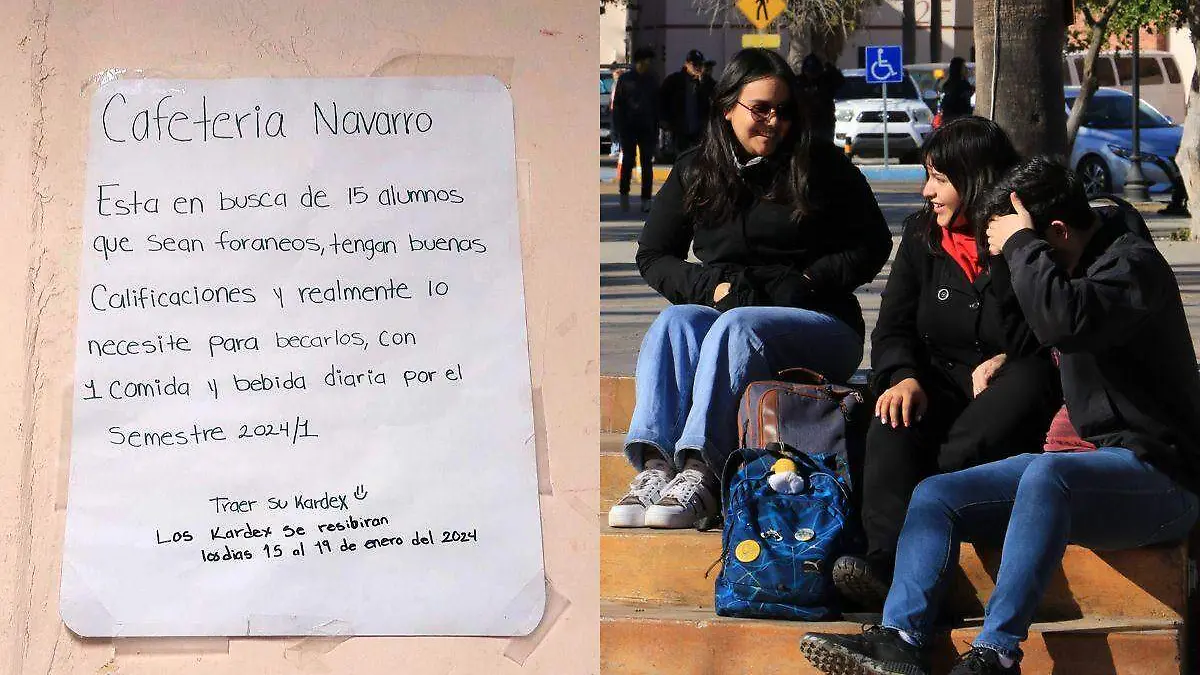 Cafeteria Navarro
Esta en busca de 15 alumnos
que sean foraneos, tengan buenas
Calificaciones y realmente lo
necesite para becarlos, con
1 comida y bebida diaria por el
semestre 2024/1
Traer su Kardex
Los Kardex se resibiran
los dias 15 al 19 de enero del 2024